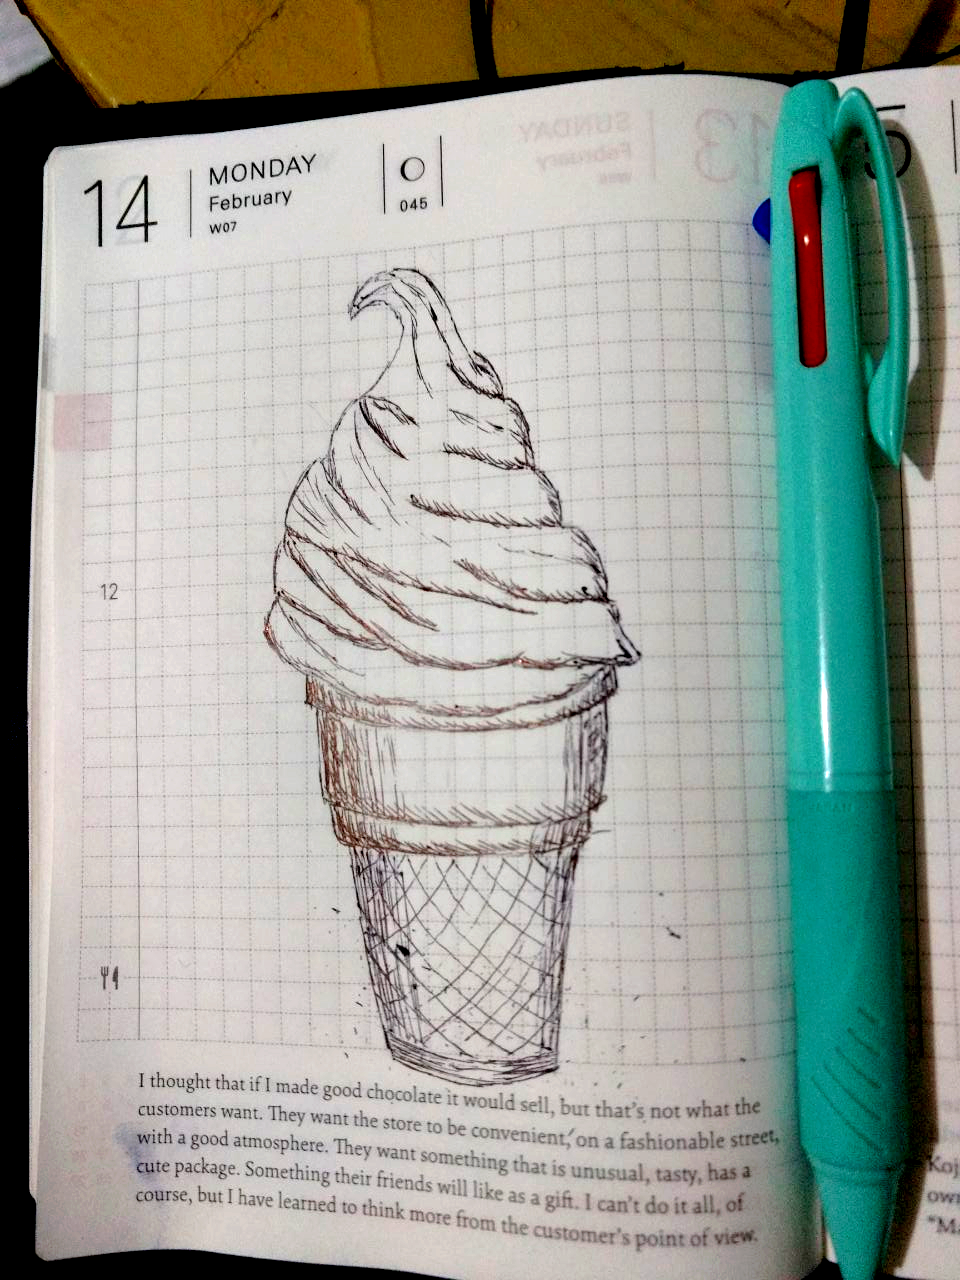 14
MONDAY
February
W07
045
SUNDAY
February
13
5
12
I thought that if I made good chocolate it would sell, but that's not what the
customers want. They want the store to be convenient, on a fashionable street,
with a good atmosphere. They want something that is unusual, tasty, has a
cute package. Something their friends will like as a gift. I can't do it all, of
course, but I have learned to think more from the customer's point of view.
Koj
own
"Ma